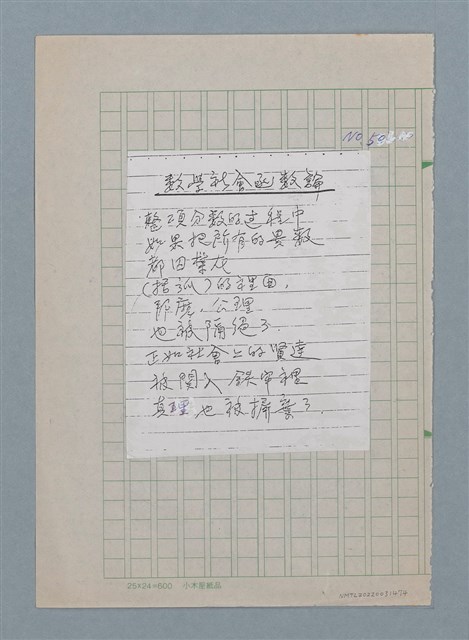 數學社會函數論
整頓分數的过程中
如果把所有的異數
都囚禁在
(括弧)的裡面,
那麼,公理
也被隔絕了.
正如社會上的賢達
被関入鉄牢裡
真理也被摒棄了.
25×24=600 小木屋紙品